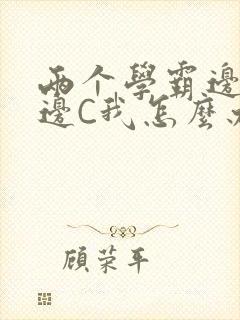 两个學霸邊
邊C我怎麼
顾荣平